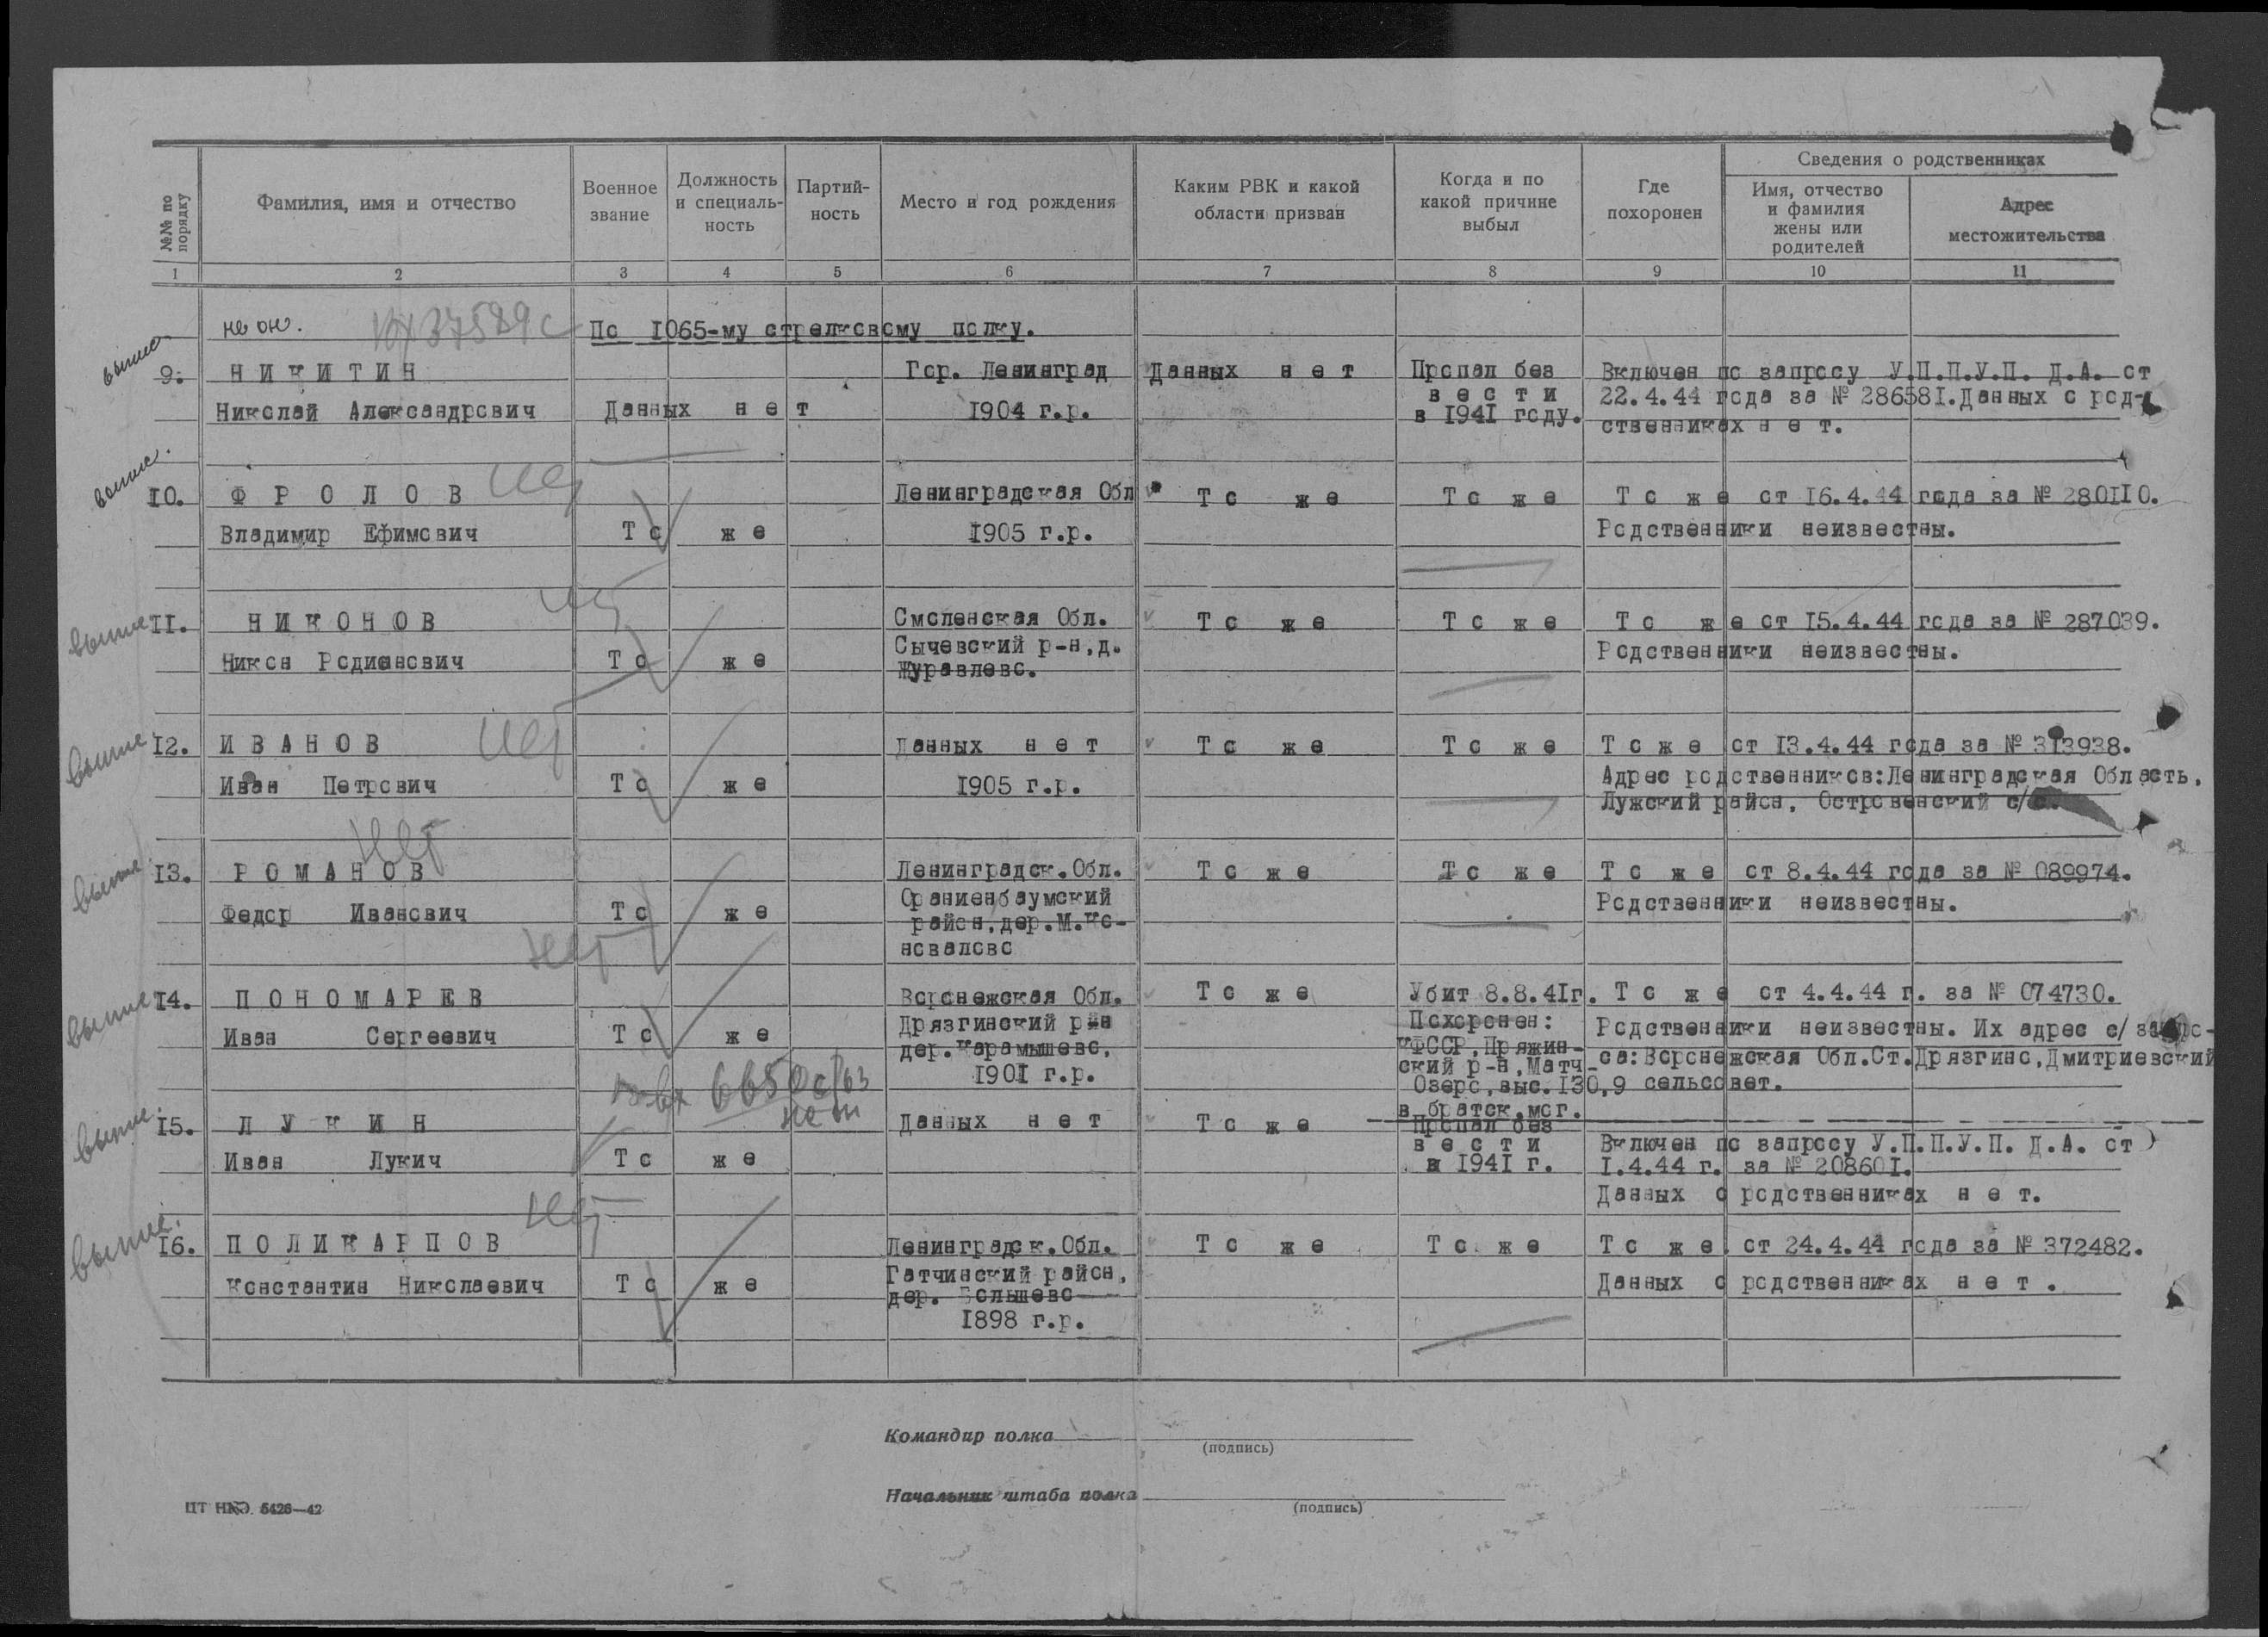 №№ по порядку
Фамилия, имя и отчество
Военное звание
Должность и специаль-ность
Партий-ность
Место и год рождения
Каким РВК и какой области призван
Когда и по какой причине выбыл
Где похоронен
Сведения о родственниках
Имя, отчество и фамилия жены или родителей
Адрес местожительства
1 2 3 4 5 6 7 8 9 10 11
не он. 37589с
По 1065-му стрелковому полку.
выпис
9. НИКИТИН Гор. Ленинград Данных нет Пропал без Включен по запросу У.П.П.У.П. Д.А. от
Николай Александрович Данных нет 1904 г.р. вести 22.4.44 года за № 286581. Данных о род-
в 1941 году. ственниках нет.
выпис.
10. ФРОЛОВ нет Ленинградская Обл То же То же То же от 16.4.44 года за № 280110.
Владимир Ефимович То же 1905 г.р. Родственники неизвестны.
нет
выпис
11. НИКОНОВ Смоленская Обл. То же То же То же от 15.4.44 года за № 287039.
Никон Родионович То же Сычевский р-н, д. Родственники неизвестны.
Журавлево.
выпис.
12. ИВАНОВ нет Данных нет То же То же То же от 13.4.44 года за № 313938.
Иван Петрович То же 1905 г.р. Адрес родственников: Ленинградская Область,
Лужский район, Островенский с/с.
нет
выпис
13. РОМАНОВ Ленинградск. Обл. То же То же То же от 8.4.44 года за № 089974.
Федор Иванович То же Ораниенбаумский Родственники неизвестны.
район, дер. М. Ко-
новалово
нет
выпис
14. ПОНОМАРЕВ Воронежская Обл. То же Убит 8.8.41г. То же от 4.4.44 г. за № 074730.
Иван Сергеевич То же Дрязгинский р-н Похоронен: Родственники неизвестны. Их адрес с/
дер. Карамышево, КФССР, Пряжин- са: Воронежская Обл. Ст. Дрязгино, Дмитриевский
1901 г.р. ский р-н, Матч- сельсовет.
Озеро, выс. 130,9
в братск. мог.
вх 6650с/63
не он
выпис.
15. ЛУКИН Данных нет То же Пропал без
Иван Лукич То же вести Включен по запросу У.П.П.У.П. Д.А. от
в 1941 г. 1.4.44 г. за № 208601.
Данных о родственниках нет.
нет
выпис.
16. ПОЛИКАРПОВ Ленинградск. Обл. То же То же То же от 24.4.44 года за № 372482.
Константин Николаевич То же Гатчинский район, Данных о родственниках нет.
дер. Большево
1898 г.р.
Командир полка
(подпись)
Начальник штаба полка
(подпись)
ЦТ НКО. 5426—42